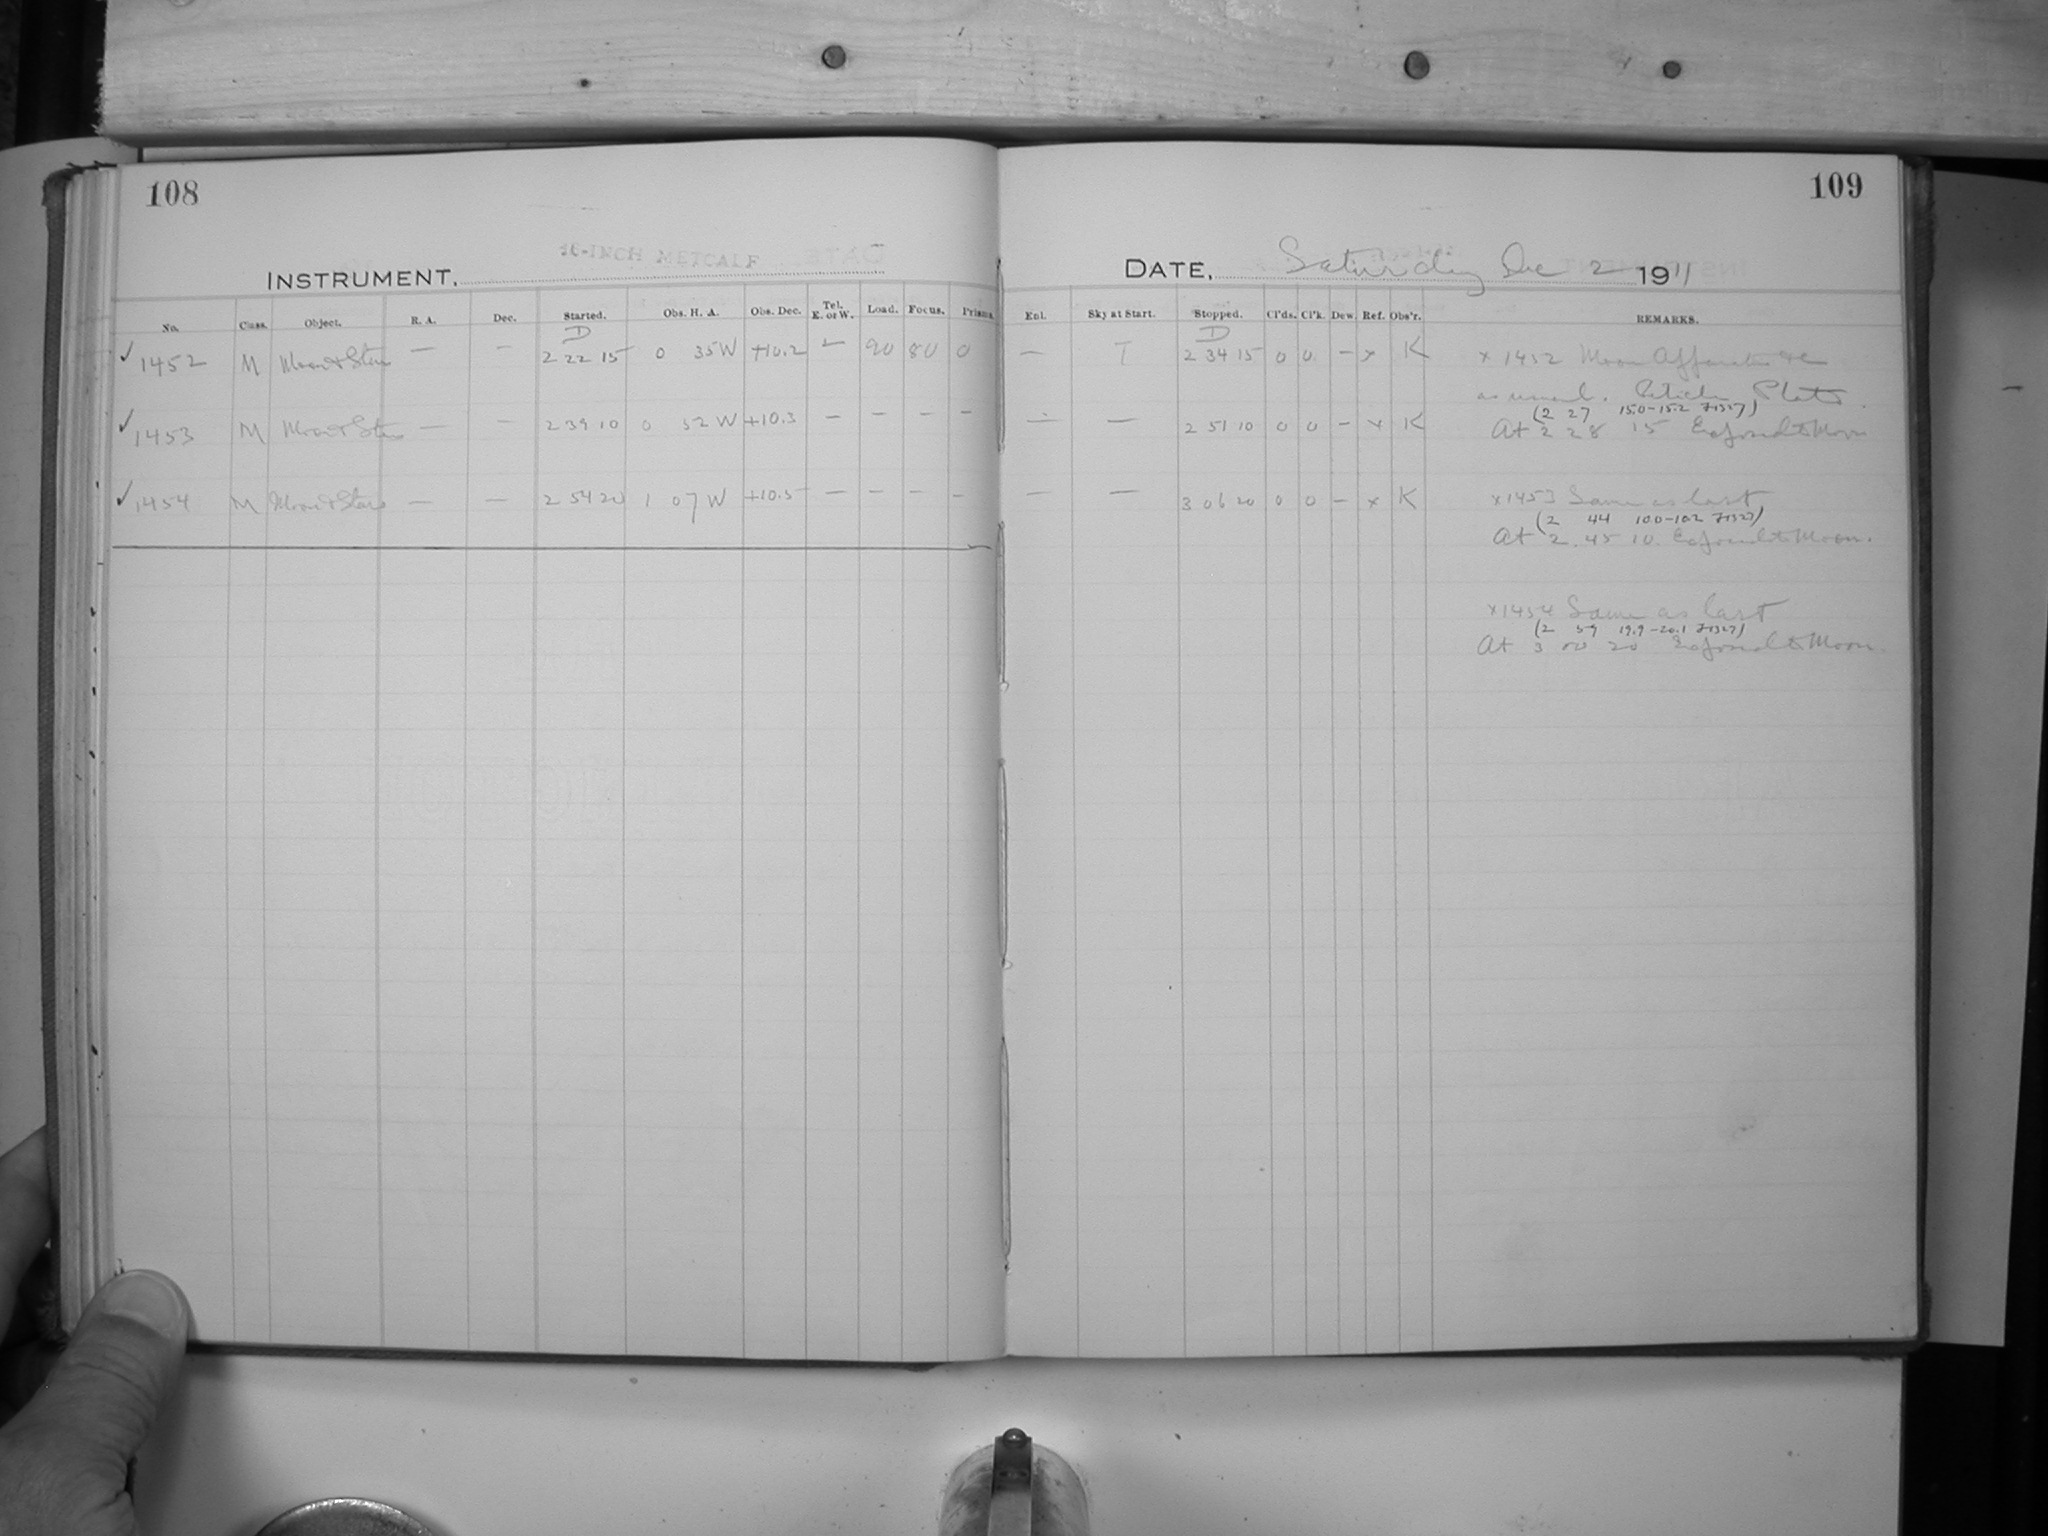 108
16-INCH METCALF
INSTRUMENT,
No. Class. Object. R. A. Dec. Started. Obs. H. A. Obs. Dec. Tel. E. or W. Load. Focus. Prisms
D
✓ 1452 M Moon & Stars — — 2 22 15 0 35 W +10.2 — 90 80 0
✓ 1453 M Moon & Stars — — 2 39 10 0 52 W +10.3 — — — —
✓ 1454 M Moon & Stars — — 2 54 20 1 07 W +10.5 — — — —
109
DATE, Saturday Dec 2 1911
Enl. Sky at Start. Stopped. Cl'ds. Cl'k. Dew. Ref. Obs'r. REMARKS.
D
— T 2 34 15 0 0 — x K x 1452 Moon Apparatus &c
as usual. Plate.
(2 27 15.0-15.2
— — 2 51 10 0 0 — x K At 2 28 15 Exposed to Moon
— — 3 06 20 0 0 — x K x 1453 Same as last
(2 44 10.0-10.2
At 2 45 10 Exposed to Moon.
x 1454 Same as last
(2 59 19.9-20.1
At 3 00 20 Exposed to Moon.